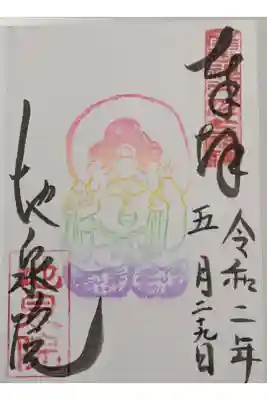 奉拝
令和二年
五月二十九日
地泉院